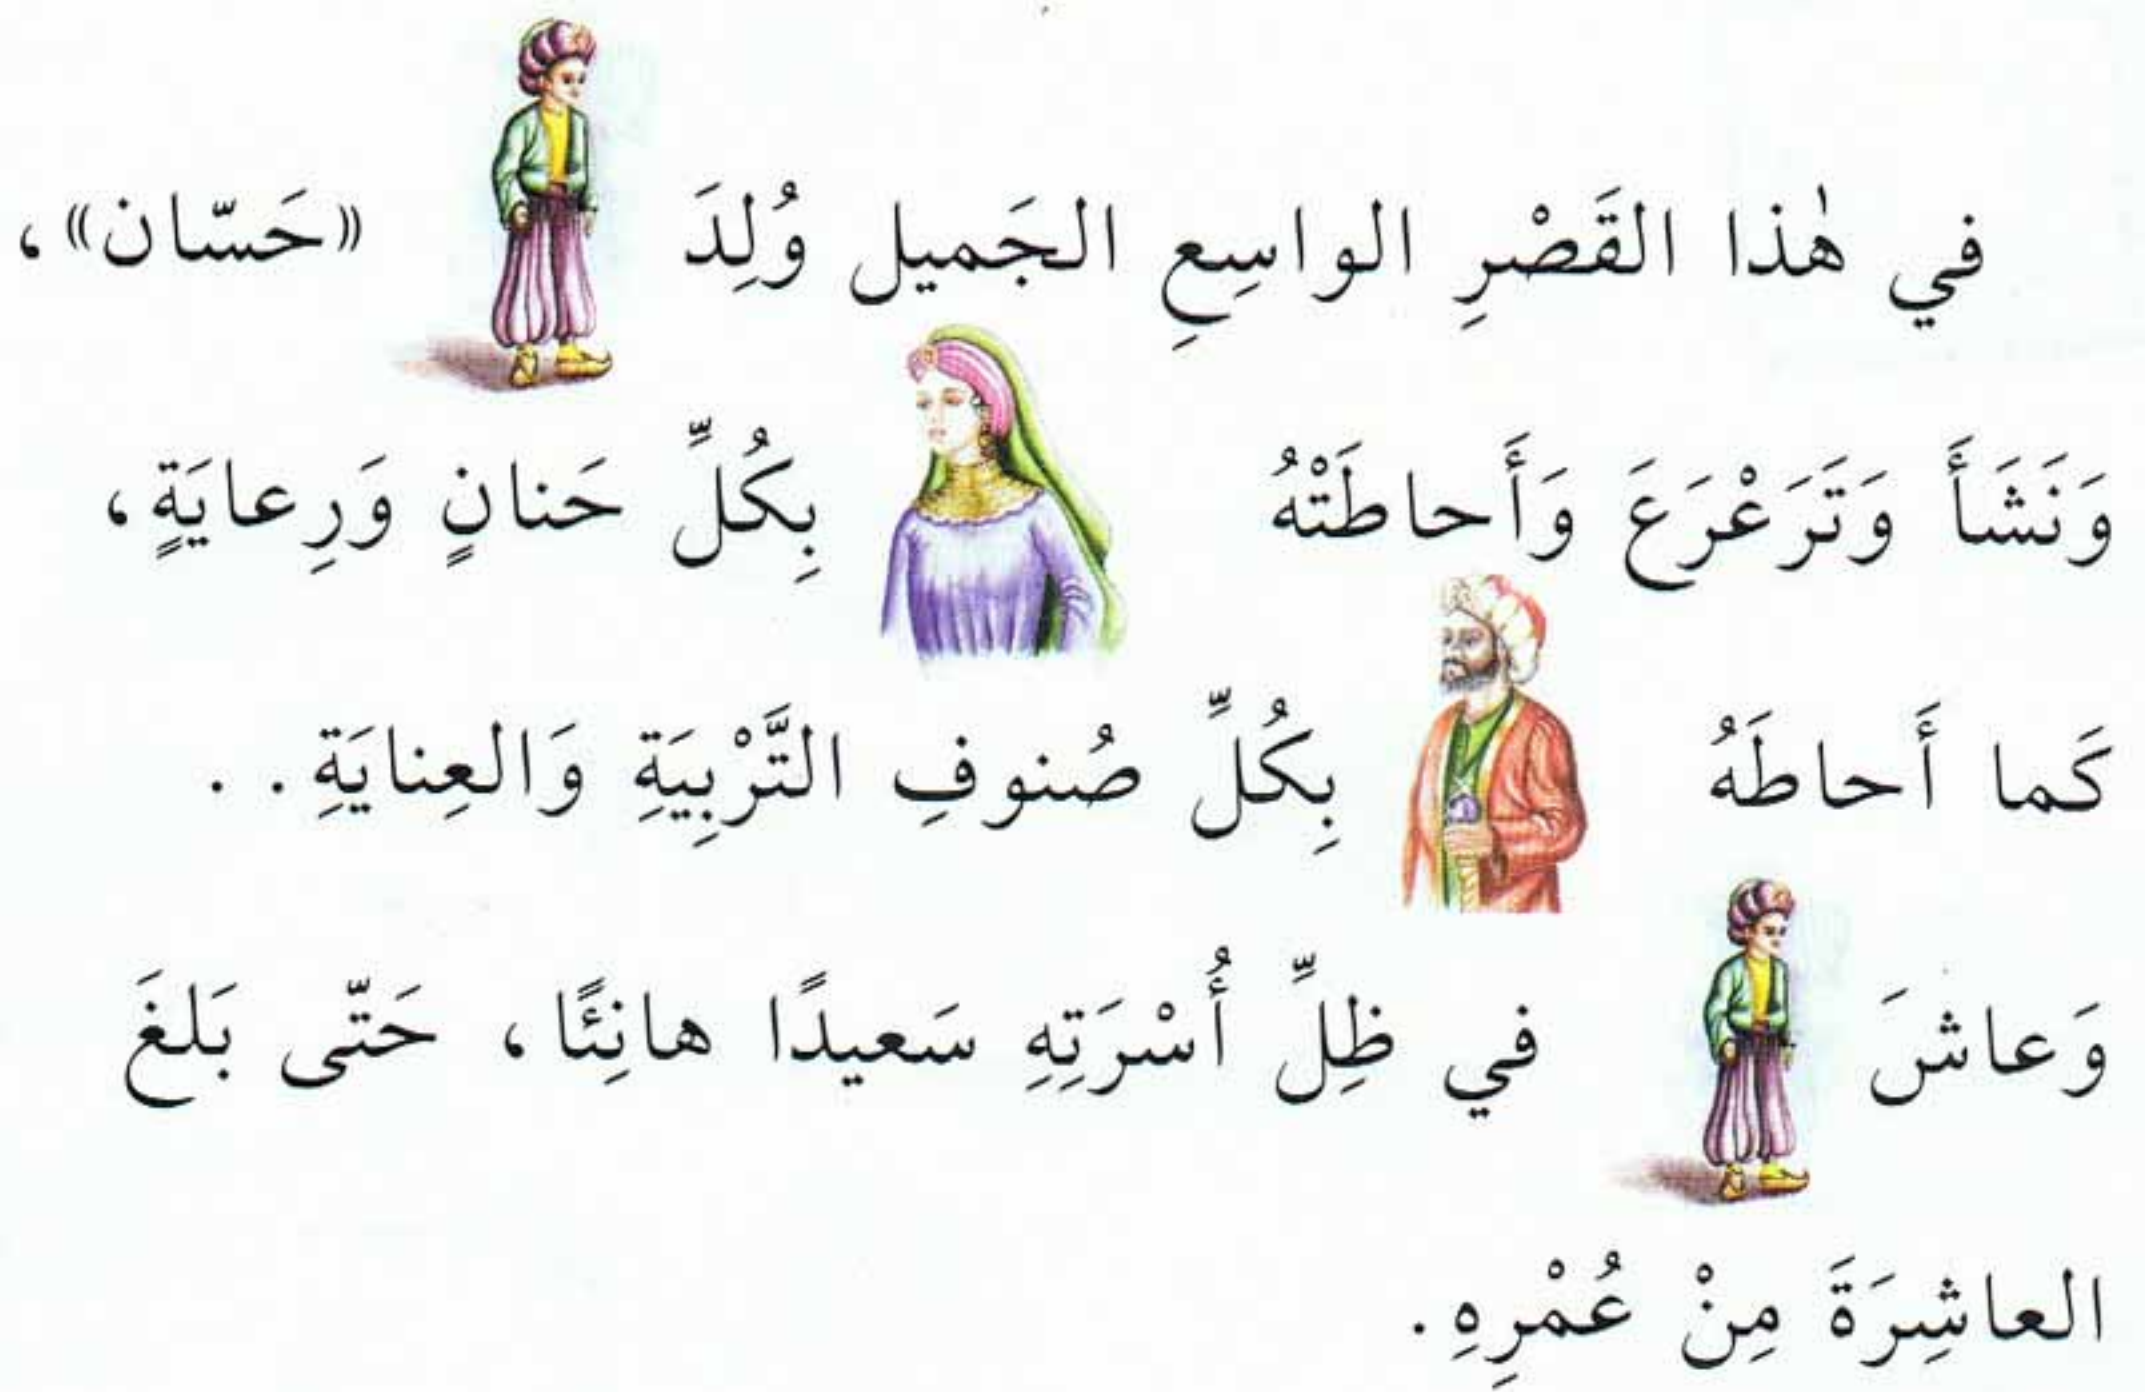 في هٰذا القَصْرِ الواسِعِ الجَميل وُلِدَ «حَسّان»،
وَنَشَأَ وَتَرَعْرَعَ وَأَحاطَتْهُ بِكُلِّ حَنانٍ وَرِعايَةٍ،
كَما أَحاطَهُ بِكُلِّ صُنوفِ التَّرْبِيَةِ وَالعِنايَةِ . .
وَعاشَ في ظِلِّ أُسْرَتِهِ سَعيدًا هانِئًا، حَتّى بَلغَ
العاشِرَةَ مِنْ عُمْرِهِ.